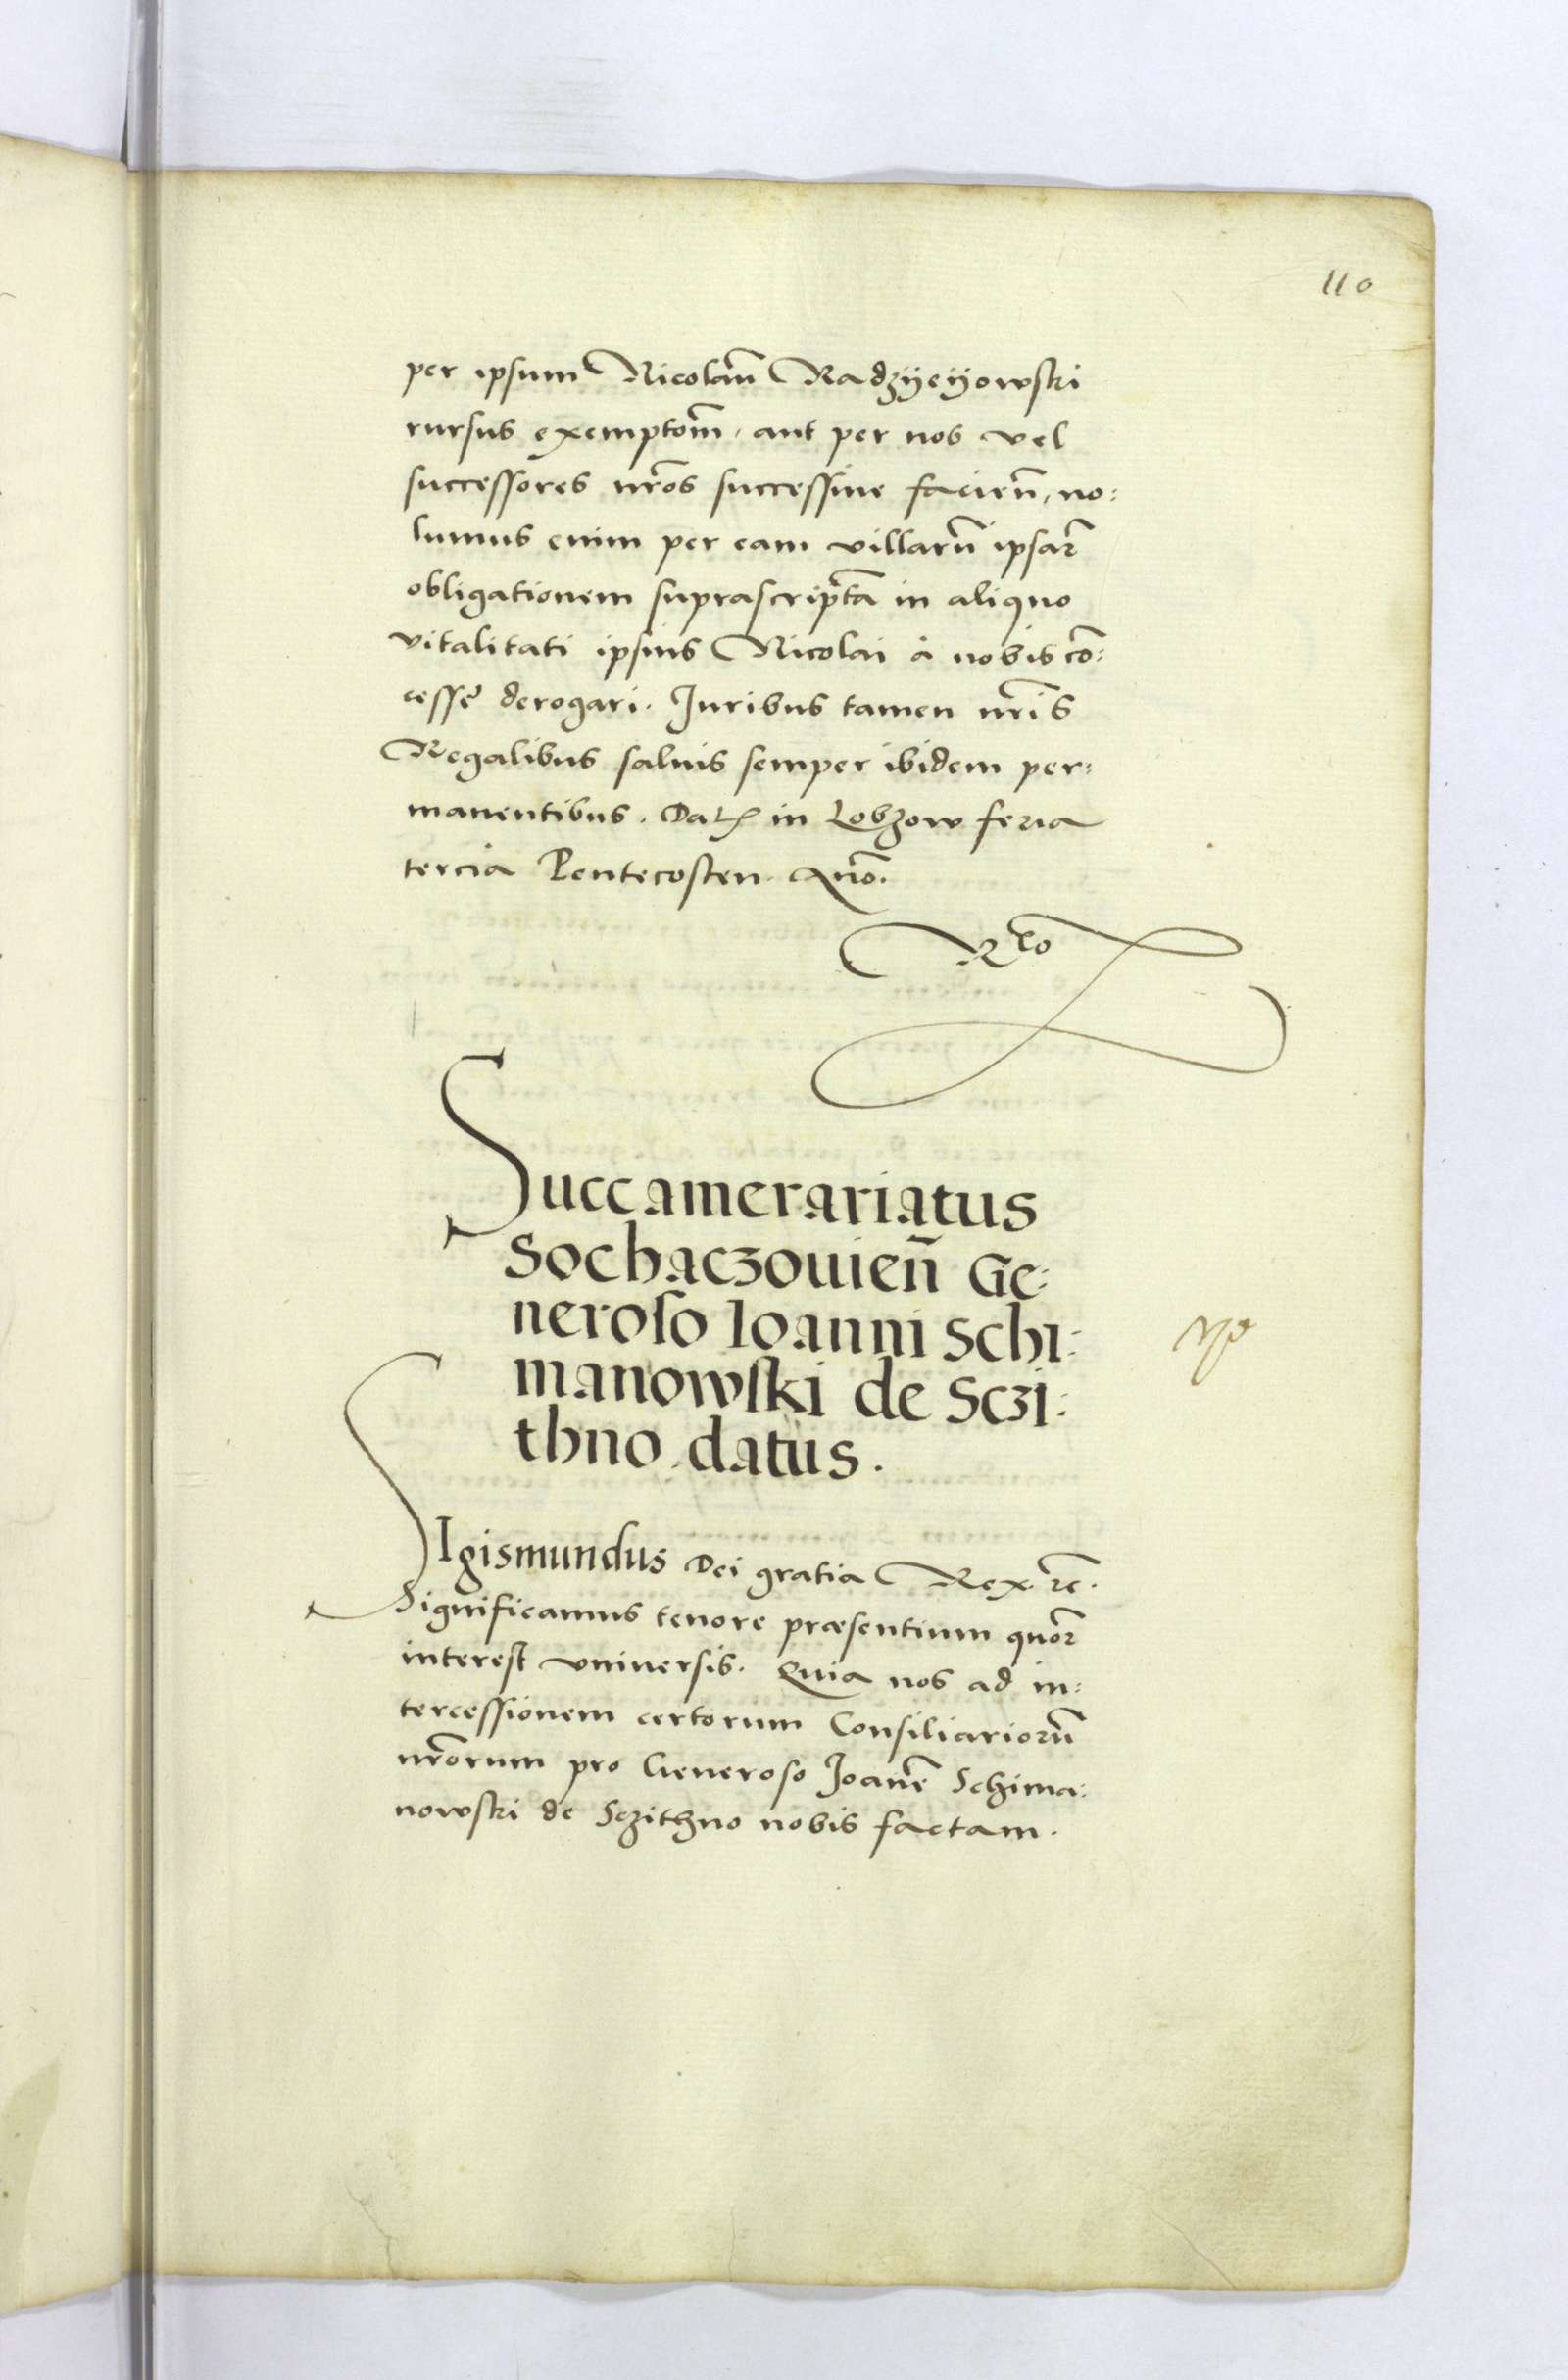 110
per ipsum Nicolaū Radzÿeÿowski
rursus exemptom̄, aut per nos vel
successores nr̄os successiue faciēn, no:
lumus enim per eam villarū ipsaꝝ
obligationem suprascriptā in aliquo
vitalitati ipsius Nicolai à nobis cō:
cessę derogari. Iuribus tamen nr̄is
Regalibus saluis semper ibidem per:
manentibus. Datꝭ in Lobzow feria
tercia Pentecosten. Anō.
Rlō
Succamerariatus
Sochaczouien̄ Ge:
neroso Ioanni Schi:
manowski de Sczi:
thno datus.
SIgismundus Dei gratia Rex ꝛc̄.
Significamus tenore præsentium quoꝝ
interest vniuersis. Quia nos ad in:
tercessionem certorum Consiliariorū
nr̄orum pro Generoso Joanē Schima:
nowski de Sczithno nobis factam.